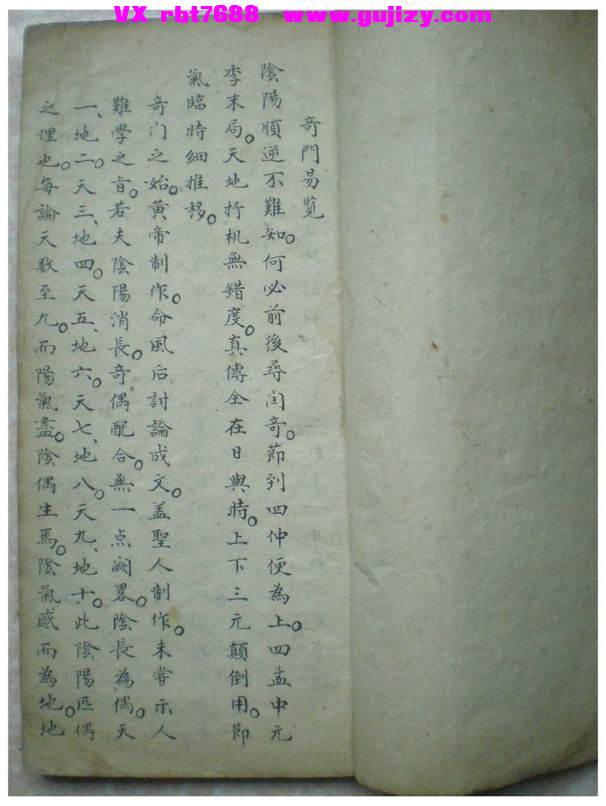 VX rbt7688 www.gujizy.com
奇門易覽
陰陽順逆不難知。何必前後尋闰奇。節到四仲便為上。四孟中元
季末局。天地抒机無錯度。真傳全在日與時。上下三元顛倒用。節
氣臨時細推移。
奇门之始。黄帝制作。命風后討論成文。盖聖人制作。未嘗示人
難學之旨。若夫陰陽消長。奇偶配合。無一点阙畧。陰長為偶。天
一、地二。天三、地四。天五、地六。天七、地八。天九、地十。此陰陽匹偶
之理也。每論天数至九。而陽氣盡。陰偶生焉。陰氣感而為地。地